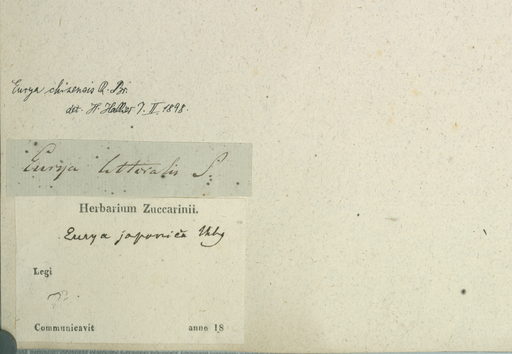 Eurya chinensis R. Br.
det. H. Hallier 7. II. 1898.
Eurya littoralis S.
Herbarium Zuccarinii.
Eurya japonica Thbg
Legi
Communicavit anno 18